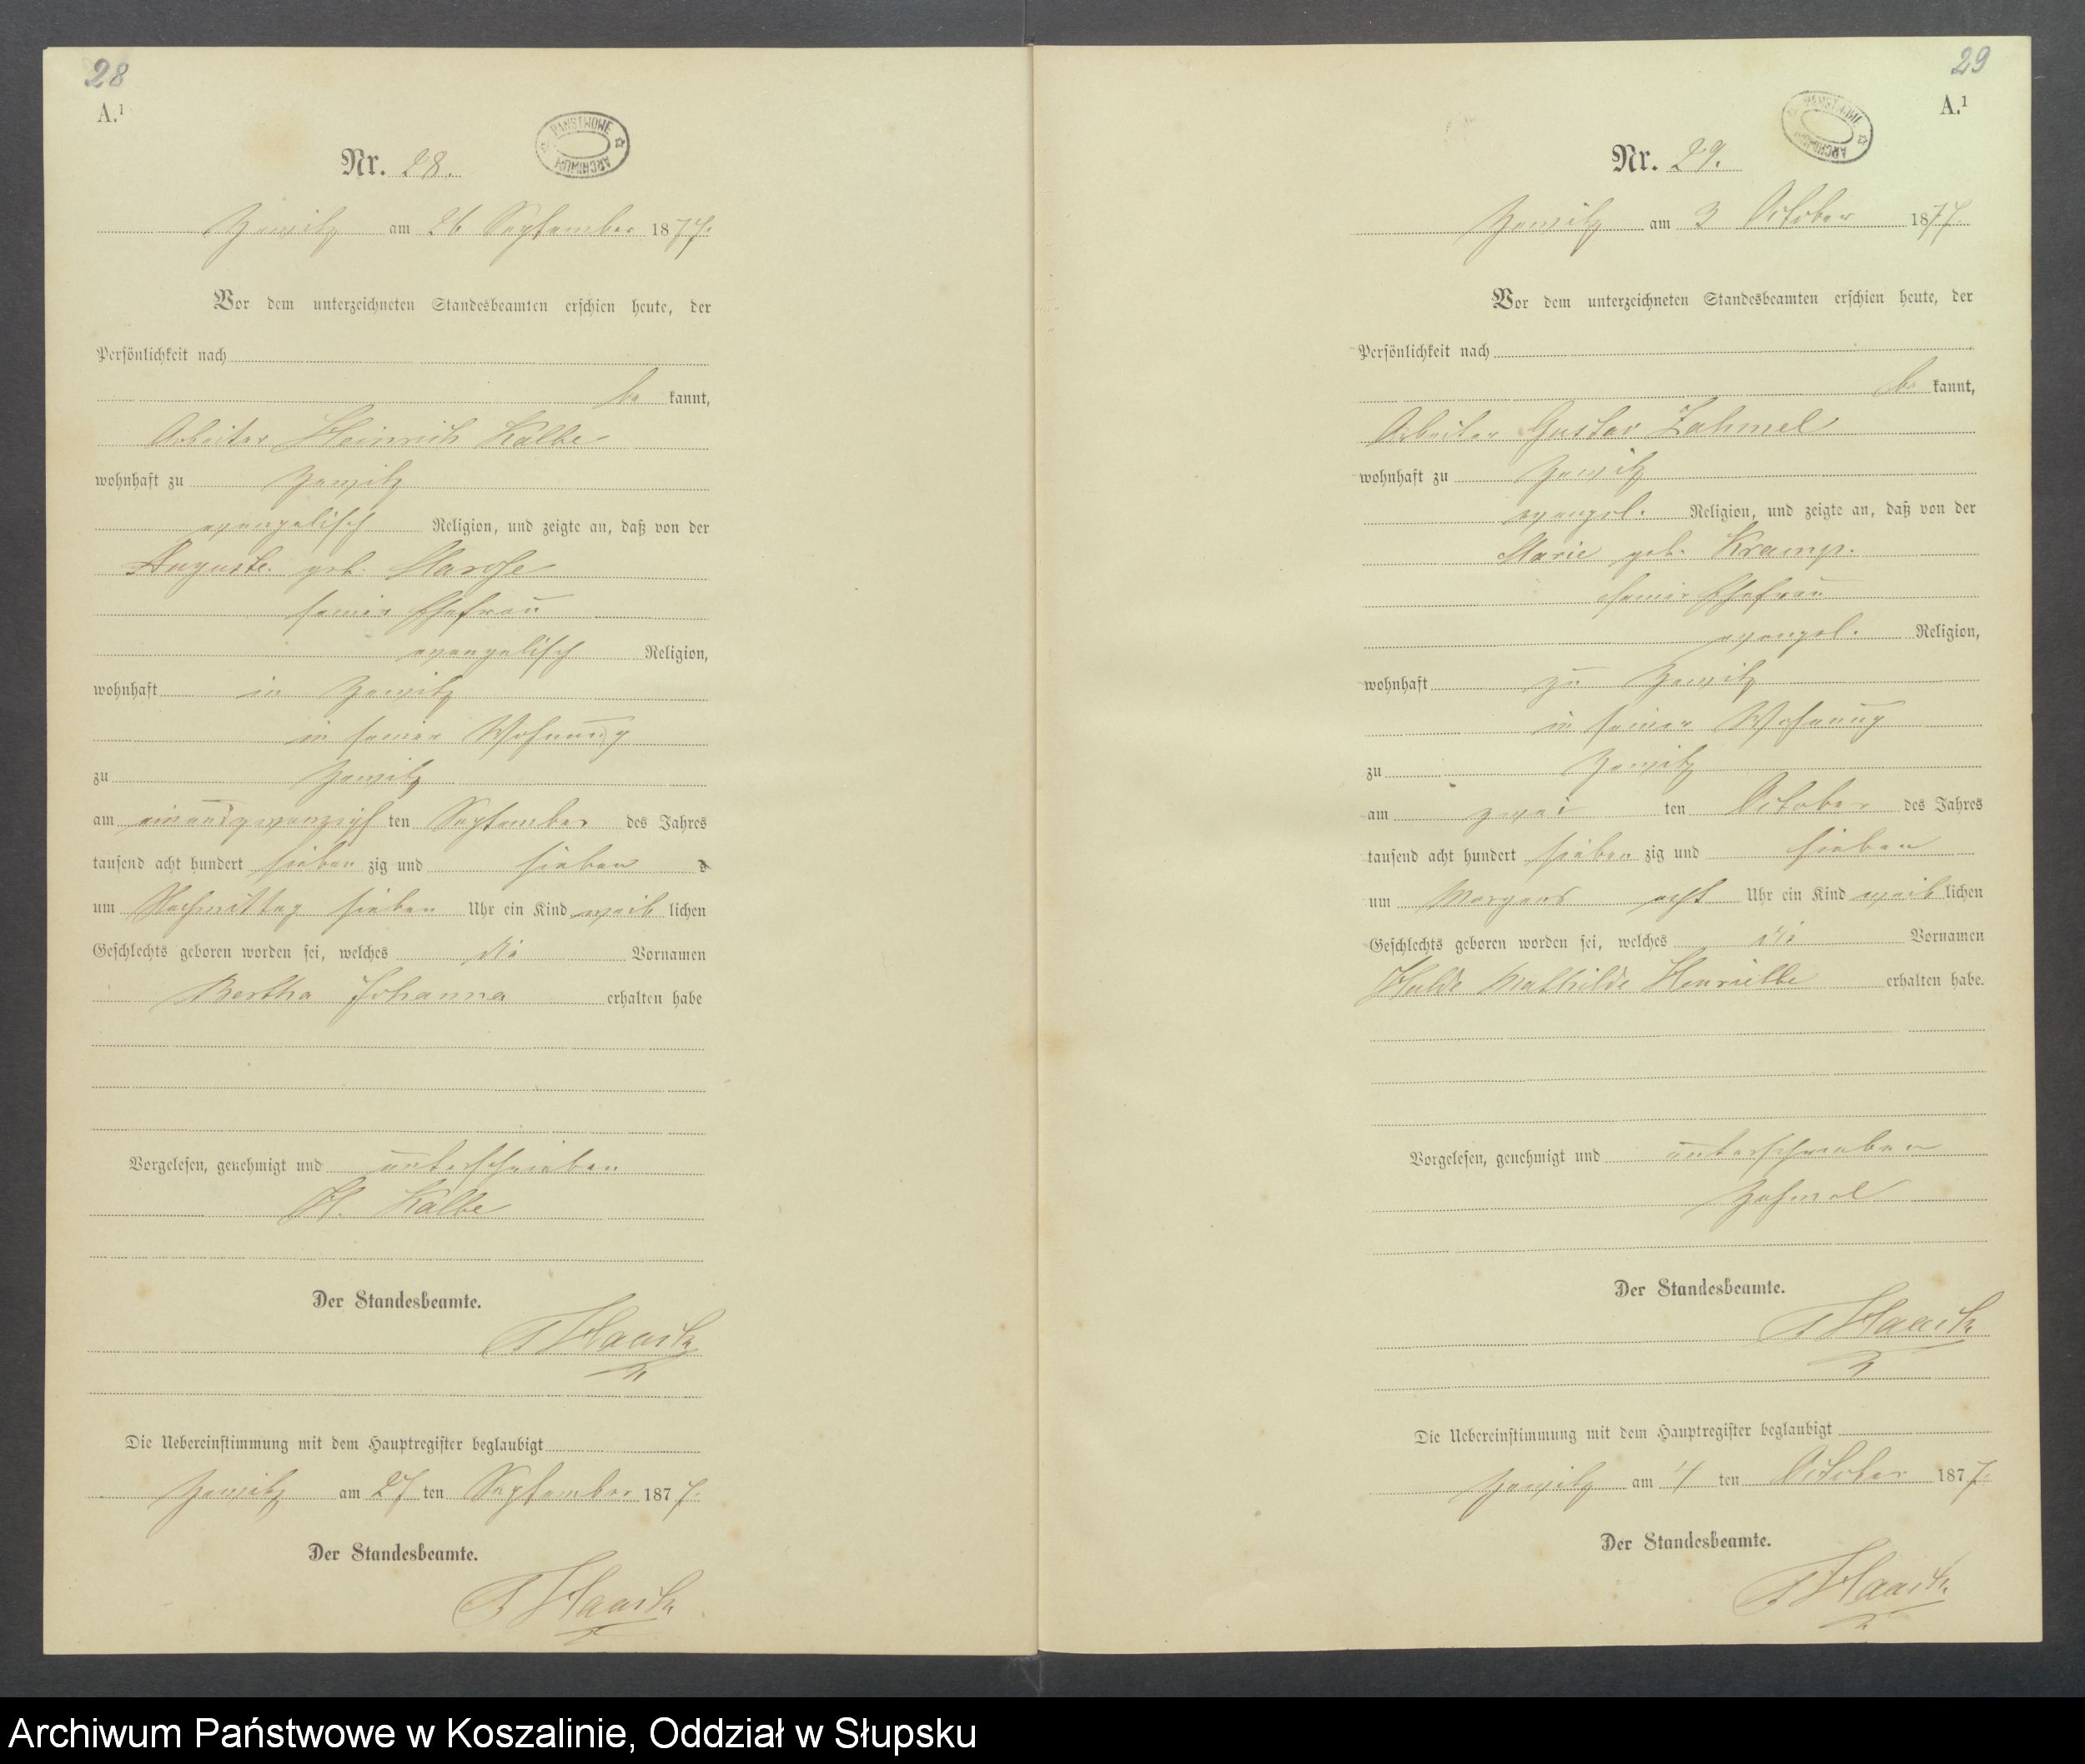 28
A.¹
PAŃSTWOWE
ARCHIWUM
Nr. 28.
Zewitz am 26 September 1877.
Vor dem unterzeichneten Standesbeamten erschien heute, der
Persönlichkeit nach
be kannt,
Arbeiter Heinrich Kalbe
wohnhaft zu Zewitz
evangelisch Religion, und zeigte an, daß von der
Auguste geb.
seiner Ehefrau
evangelisch Religion,
wohnhaft in Zewitz
in seiner Wohnung
zu Zewitz
am einundzwanzigs ten September des Jahres
tausend acht hundert sieben zig und sieben
um Nachmittag sieben Uhr ein Kind weib lichen
Geschlechts geboren worden sei, welches die Vornamen
Bertha Johanna erhalten habe
Vorgelesen, genehmigt und unterschrieben
H. Kalbe
Der Standesbeamte.
Die Uebereinstimmung mit dem Hauptregister beglaubigt
Zewitz am 27 ten September 187 7.
Der Standesbeamte.
29
A.¹
PAŃSTWOWE
ARCHIWUM
Nr. 29.
Zewitz am 3 October 1877.
Vor dem unterzeichneten Standesbeamten erschien heute, der
Persönlichkeit nach
be kannt,
Arbeiter Gustav Zahmel
wohnhaft zu Zewitz
evangel. Religion, und zeigte an, daß von der
Marie geb. Kramp.
seiner Ehefrau
evangel. Religion,
wohnhaft zu Zewitz
in seiner Wohnung
zu Zewitz
am zwei ten October des Jahres
tausend acht hundert sieben zig und sieben
um Morgens acht Uhr ein Kind weib lichen
Geschlechts geboren worden sei, welches die Vornamen
Hulde Mathilde Henriette erhalten habe.
Vorgelesen, genehmigt und unterschrieben
Zahmel
Der Standesbeamte.
Die Uebereinstimmung mit dem Hauptregister beglaubigt
Zewitz am 4 ten October 187 7.
Der Standesbeamte.
Archiwum Państwowe w Koszalinie, Oddział w Słupsku